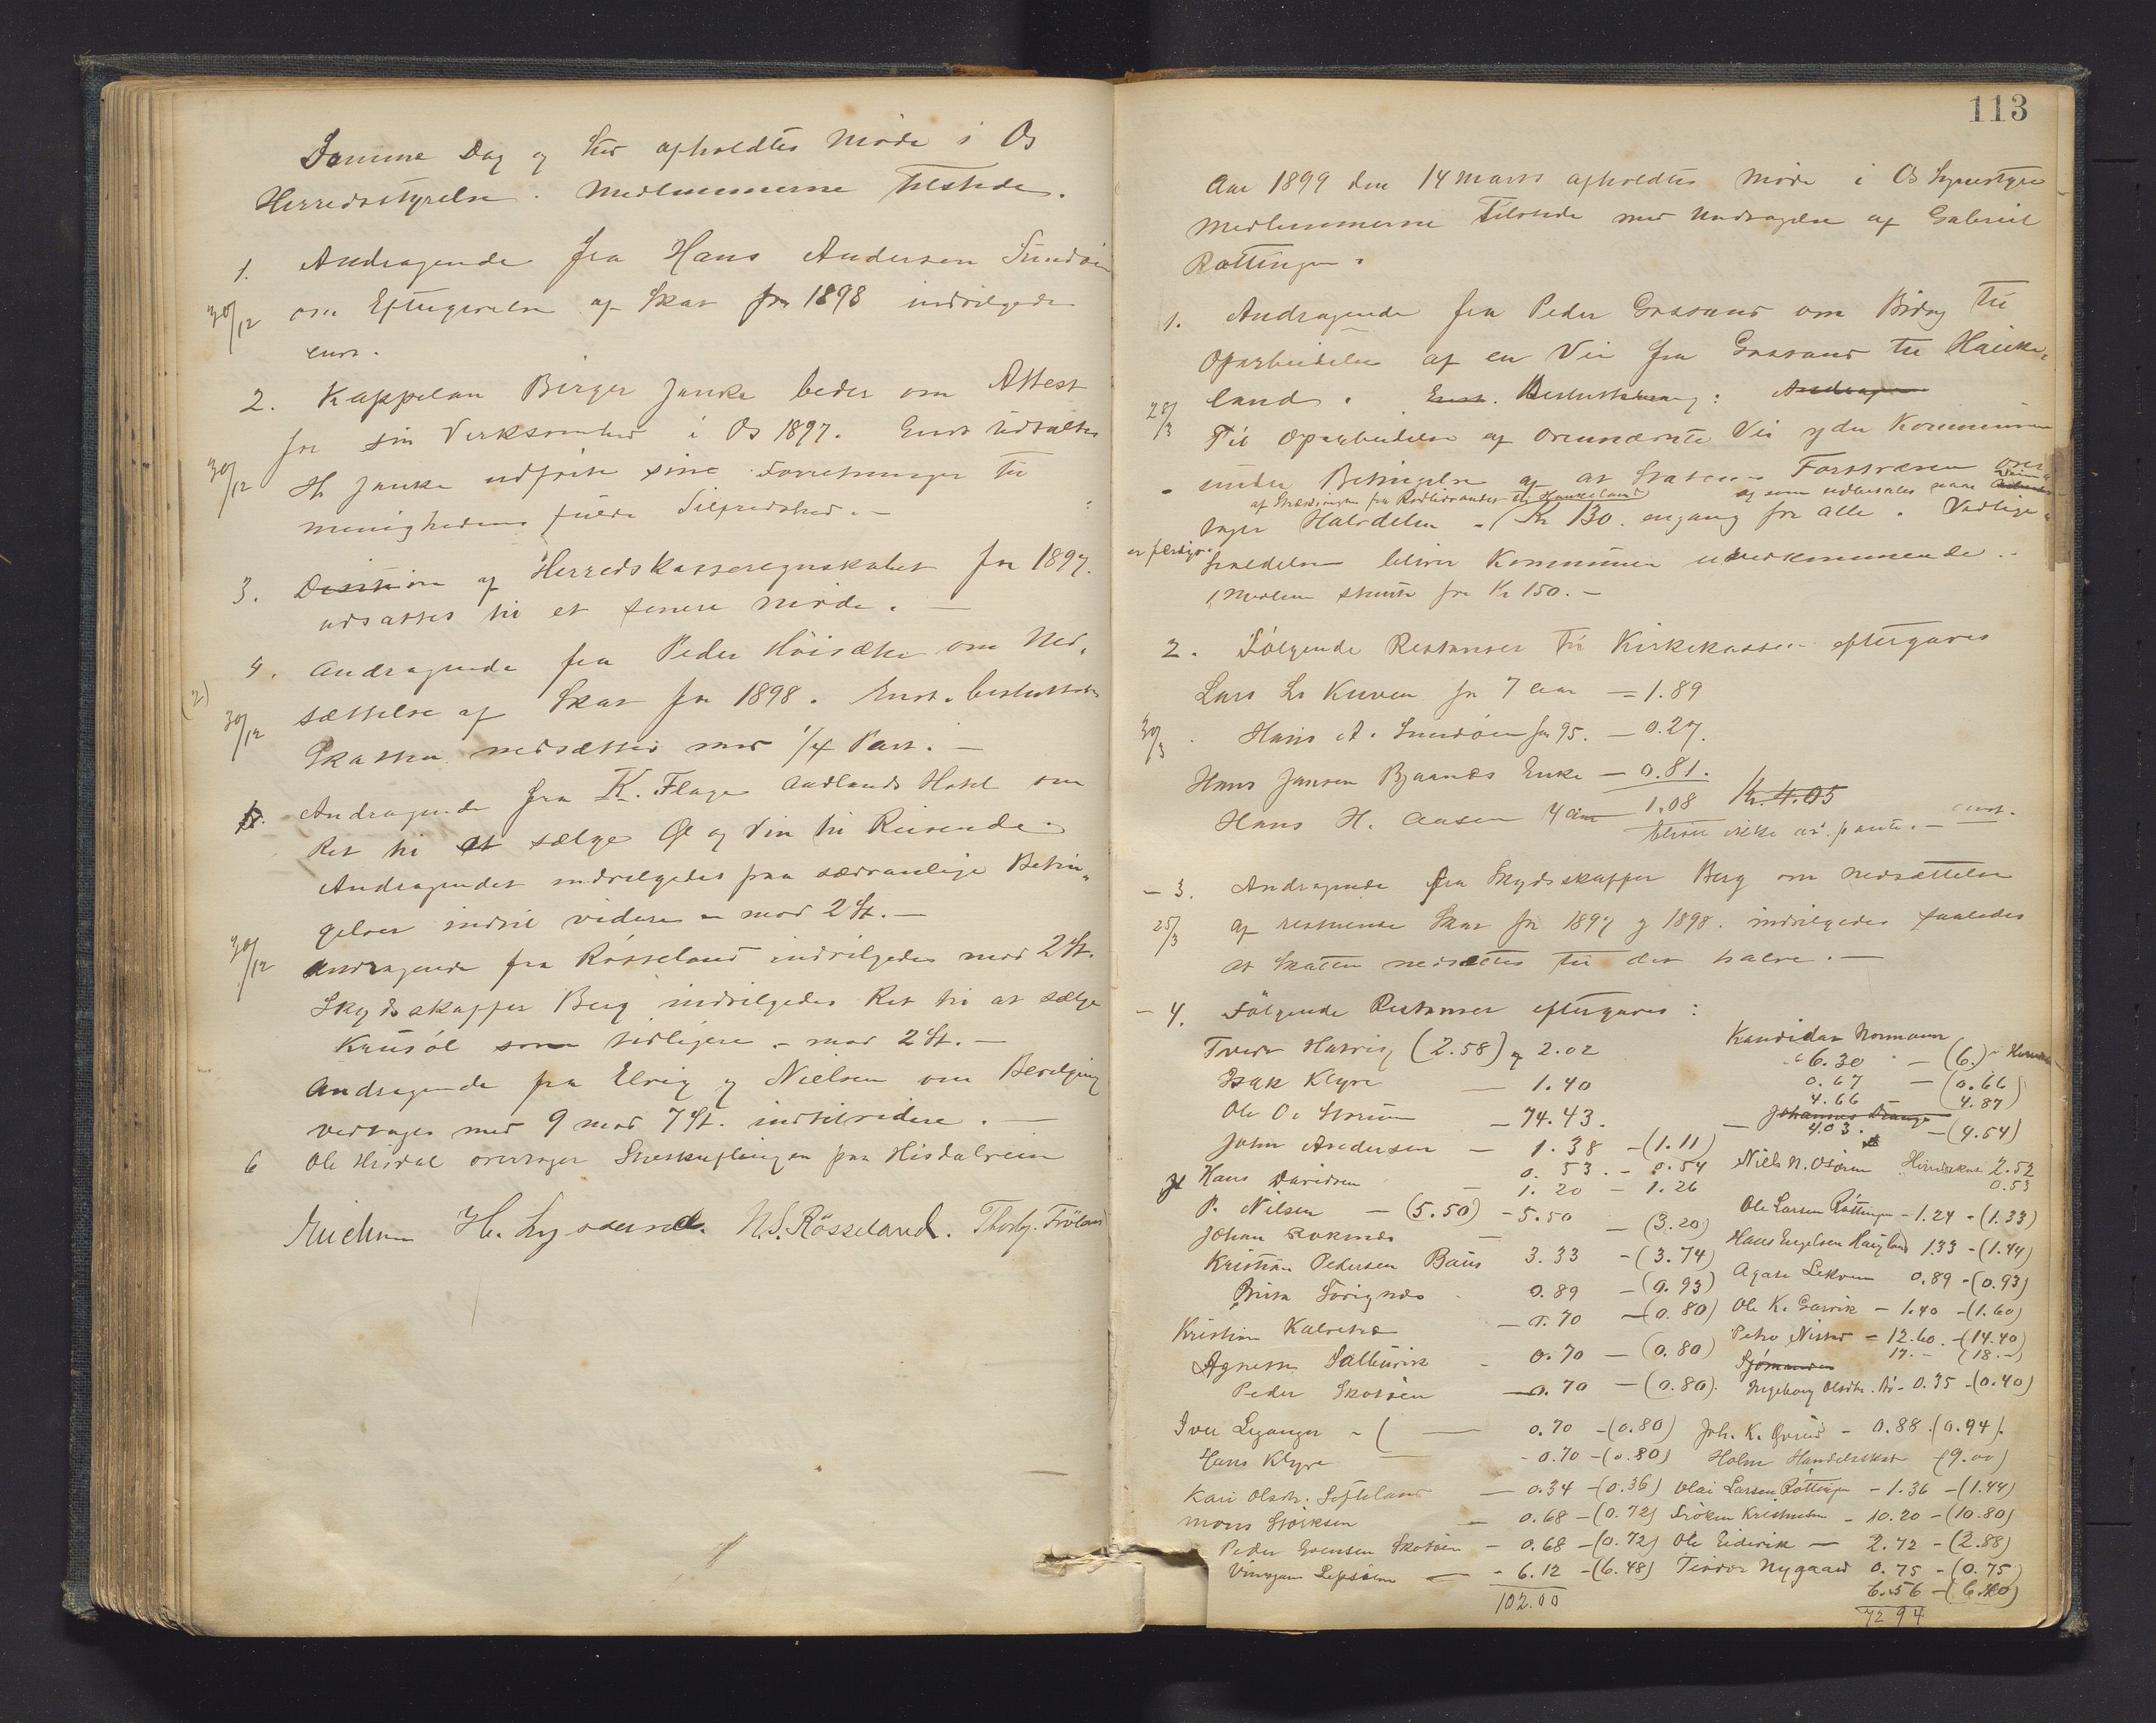 Samme Dag og Sted afholdtes Møde i Os
Herredsstyrelse. Medlemmerne tilstede.
1. Andragende fra Hans Andersen Sundøen
30/12 om Eftergivelse af Skat for 1898 indvilgedes
enst.
2. Kappelan Birger Janke beder om Attest
for sin Virksomhed i Os 1897. Enst. udtaltes
30/12 Hr Janke udførte sine Forretninger til
menighedens fulde Tilfredshed. —
3. Desision af Herredskasseregnskabet for 1897
udsattes til et senere møde. —
4. Andragende fra Peder Høisæter om Ned-
(2) sættelse af Skat for 1898. Enst. besluttedes
30/12 Skatten nedsættes med 1/4 Part. —
5. Andragende fra K. Flage Aadlands Hotel om
Ret til at sælge Øl og Vin til Reisende.
Andragendet indvilgedes paa sædvanlige Betin-
gelser indtil videre – mod 2 St. —
30/12 Andragende fra Røsseland indvilgedes mod 2 St.
Skydsskaffer Berg indvilgedes Ret til at sælge
Krusøl som tidligere – mod 2 St. —
Andragende fra Elvig og Nielsen om Bevilging
vedtages med 9 mod 7 St. indtil videre. —
6 Ole Hisdal overtager Sneskuflingen paa Hisdalveien
H. Lysøsund. N. S. Røsseland. Thorbj. Frøland
113
Aar 1899 den 14 mars afholdtes Møde i Os
Medlemmerne tilstede med Undtagelse af Gabriel
Røttingen.
1. Andragende fra Peder Gaasand om Bidrag til
Oparbeidelse af en Vei fra Gaasand til Hauke-
land. Enst. Beslutning: Andrag
28/3
Til Oparbeidelse af ovennævnte Vei yder Kommunen
under Betingelse af at Statens Forstvæsen over-
af Strækningen fra til Haukeland og som udbetales naar Veien
tager Halvdelen – Kr 130. engang for alle. Vedlige-
er færdig.
holdelsen bliver Kommunen uvedkommende. -
1 Medlem stemte for Kr 150. —
2. Følgende Restanser til Kirkekassen eftergaves
Lars Ls Kuven for 7 Aar — 1.89
30/3 Hans A. Sundøen for 95. — 0.27.
Hans Jansen Bjaanes Enke — 0.81.
Hans H. Aasen 4 Aar 1.08 Kr. 4.05
bliver ikke at pante. — enst.
— 3. Andragende fra Skydsskaffer Berg om nedsættelse
25/3 af resterende Skat for 1897 og 1898. indvilgedes saaledes
at Skatten nedsættes til det halve. —
— 4. Følgende Restanser eftergaves:
Hatvig (2.58) og 2.02
Kandidat Normann
6.30 — (6.)
Isak Klyve — 1.40
0.67 — (0.66)
Ole O. — 74.43.
4.66 (4.87)
Johannes Drange
4.03. — (4.54)
John Andersen — 1.38 — (1.11)
Niels N. Osøren Herredskat 2.52
Hans Davidsen 0.53. — 0.54
0.53
1.20 — 1.26
P. Nilsen — (5.50) — 5.50
Ole Larsen Røttingen — 1.24 — (1.33)
Johan — (3.20)
Hans Engelsen Haugland 1.33 — (1.44)
Kristian Pedersen Baus 3.33 — (3.74)
Agate Lekven 0.89 — (0.93)
0.89 — (0.93)
Ole K. Gaasvik — 1.40 — (1.60)
Kristian — 0.70 — (0.80)
12.60. — (14.40)
Agnette 0.70 — (0.80)
Sjømanden 17. — (18. —)
Peder Skotøen — 0.70 — (0.80).
Ingeborg Olsdtr. — 0.35 — (0.40)
Iver Leganger — 0.70 — (0.80)
Joh. K. — 0.88. (0.94).
Hans Klyve — 0.70 — (0.80)
Holm Handelsskat (9.00)
Kari Olsdtr. Søfteland — 0.34 — (0.36)
Olai Larsen Røttingen — 1.36 — (1.44)
Mons Størksen — 0.68 — (0.72)
Frøken Kristensen — 10.20 — (10.80)
Peder Evensen Skotøen — 0.68 — (0.72)
Ole Eidsvik — 2.72 — (2.88)
Lepsøen — 6.12 — (6.48)
Teodor Nygaard 0.75 — (0.75)
6.56 — (6.40)
102.00
72 94